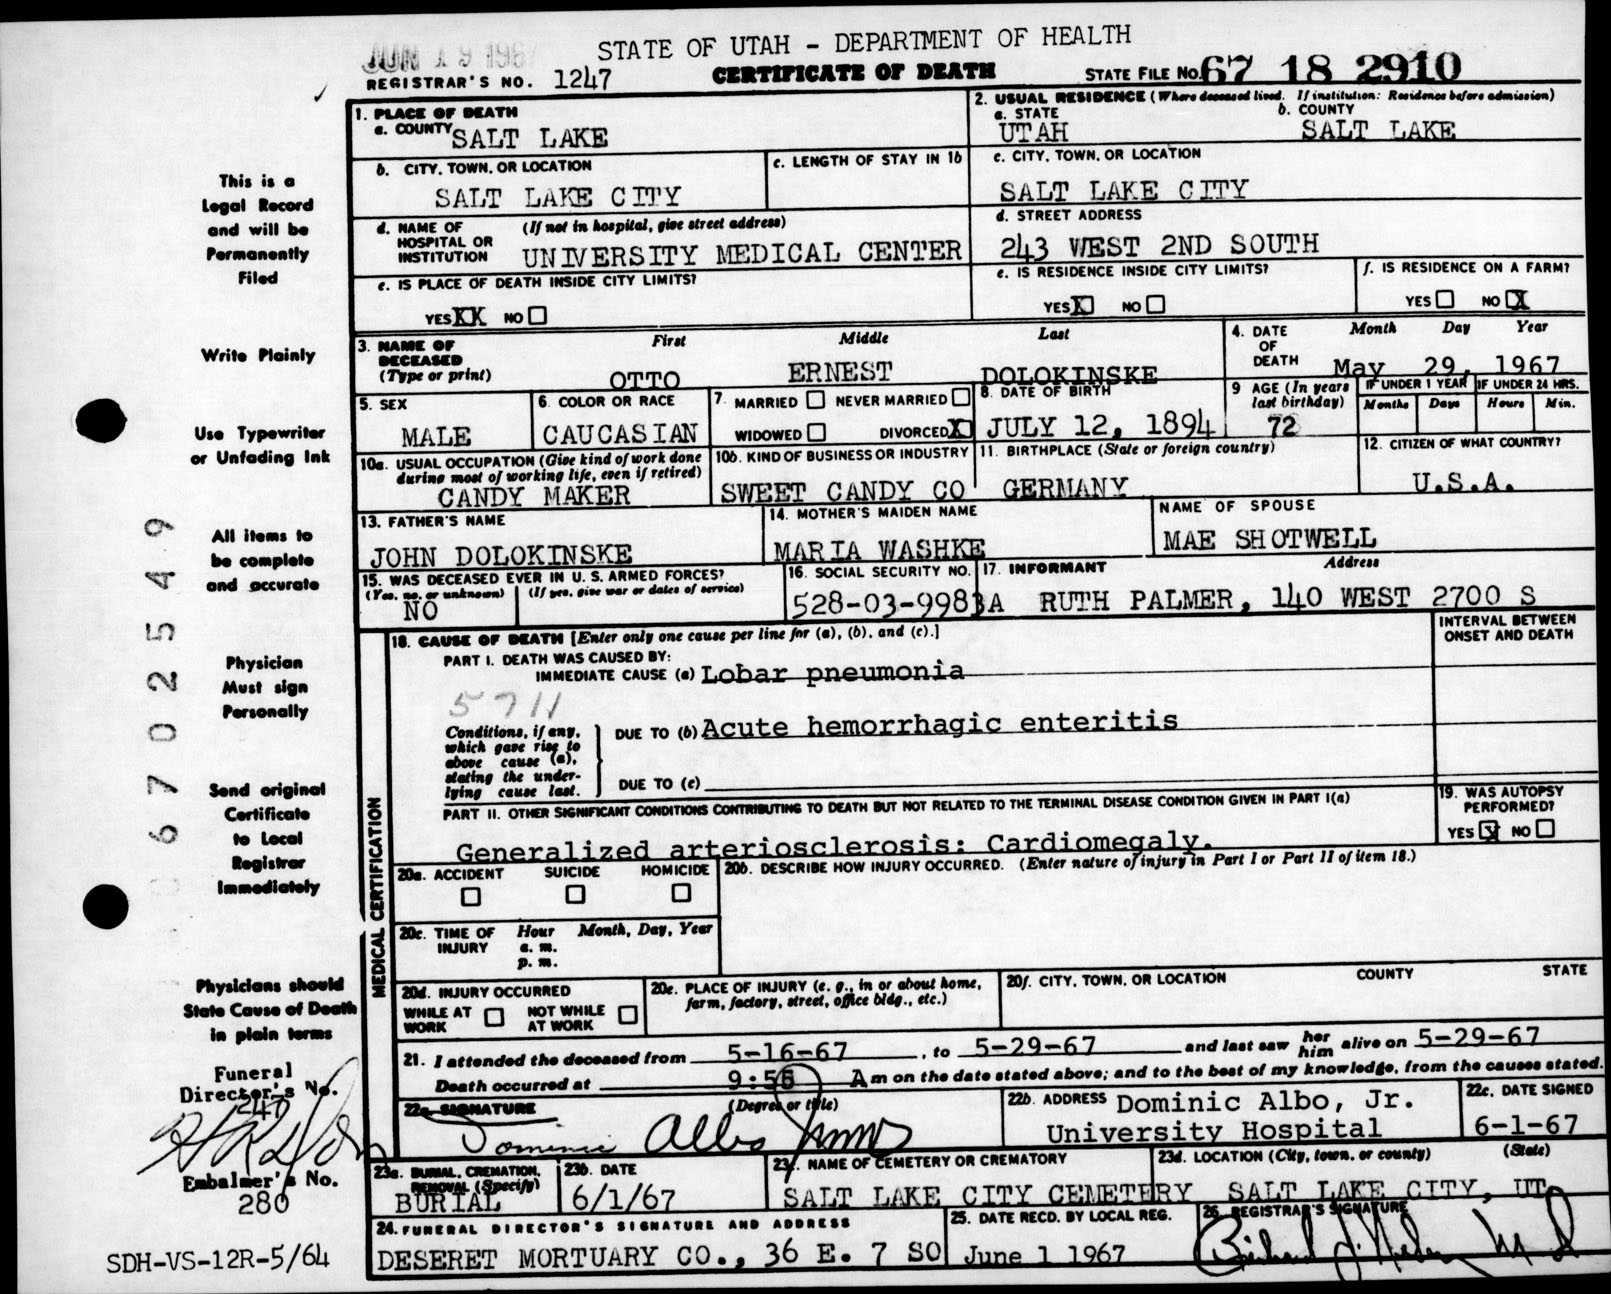 JUN 19 196
STATE OF UTAH - DEPARTMENT OF HEALTH
REGISTRAR'S NO. 1247
CERTIFICATE OF DEATH
STATE FILE NO. 67 18 2910
This is a
Legal Record
and will be
Permanently
Filed
Write Plainly
Use Typewriter
or Unfading Ink
All items to
be complete
and accurate
Physician
Must sign
Personally
Send original
Certificate
to Local
Registrar
Immediately
Physicians should
State Cause of Death
in plain terms
Funeral
Director's No.
247
Embalmer's No.
280
SDH-VS-12R-5/64
67025549
1. PLACE OF DEATH
a. COUNTY SALT LAKE
2. USUAL RESIDENCE (Where deceased lived. If institution: Residence before admission)
a. STATE UTAH
b. COUNTY SALT LAKE
b. CITY, TOWN, OR LOCATION
SALT LAKE CITY
c. LENGTH OF STAY IN 1b
c. CITY, TOWN, OR LOCATION
SALT LAKE CITY
d. NAME OF HOSPITAL OR INSTITUTION (If not in hospital, give street address)
UNIVERSITY MEDICAL CENTER
d. STREET ADDRESS
243 WEST 2ND SOUTH
e. IS PLACE OF DEATH INSIDE CITY LIMITS?
YES XX NO
e. IS RESIDENCE INSIDE CITY LIMITS?
YES X NO
f. IS RESIDENCE ON A FARM?
YES NO X
3. NAME OF DECEASED (Type or print)
First Middle Last
OTTO ERNEST DOLOKINSKE
4. DATE OF DEATH
Month Day Year
May 29, 1967
5. SEX
MALE
6. COLOR OR RACE
CAUCASIAN
7. MARRIED NEVER MARRIED
WIDOWED DIVORCED X
8. DATE OF BIRTH
JULY 12, 1894
9 AGE (In years last birthday)
72
IF UNDER 1 YEAR
Months Days
IF UNDER 24 HRS.
Hours Min.
10a. USUAL OCCUPATION (Give kind of work done during most of working life, even if retired)
CANDY MAKER
10b. KIND OF BUSINESS OR INDUSTRY
SWEET CANDY CO
11. BIRTHPLACE (State or foreign country)
GERMANY
12. CITIZEN OF WHAT COUNTRY?
U.S.A.
13. FATHER'S NAME
JOHN DOLOKINSKE
14. MOTHER'S MAIDEN NAME
MARIA WASHKE
NAME OF SPOUSE
MAE SHOTWELL
15. WAS DECEASED EVER IN U. S. ARMED FORCES?
(Yes, no, or unknown) (If yes, give war or dates of service)
NO
16. SOCIAL SECURITY NO.
528-03-9983A
17. INFORMANT Address
RUTH PALMER, 140 WEST 2700 S
MEDICAL CERTIFICATION
18. CAUSE OF DEATH [Enter only one cause per line for (a), (b), and (c).]
INTERVAL BETWEEN ONSET AND DEATH
PART I. DEATH WAS CAUSED BY:
IMMEDIATE CAUSE (a) Lobar pneumonia
5711
Conditions, if any, which gave rise to above cause (a), stating the underlying cause last.
DUE TO (b) Acute hemorrhagic enteritis
DUE TO (c)
PART II. OTHER SIGNIFICANT CONDITIONS CONTRIBUTING TO DEATH BUT NOT RELATED TO THE TERMINAL DISEASE CONDITION GIVEN IN PART I(a)
Generalized arteriosclerosis: Cardiomegaly.
19. WAS AUTOPSY PERFORMED?
YES X NO
20a. ACCIDENT SUICIDE HOMICIDE
20b. DESCRIBE HOW INJURY OCCURRED. (Enter nature of injury in Part I or Part II of item 18.)
20c. TIME OF INJURY
Hour Month, Day, Year
a. m.
p. m.
20d. INJURY OCCURRED
WHILE AT WORK NOT WHILE AT WORK
20e. PLACE OF INJURY (e. g., in or about home, farm, factory, street, office bldg., etc.)
20f. CITY, TOWN, OR LOCATION COUNTY STATE
21. I attended the deceased from 5-16-67, to 5-29-67 and last saw her him alive on 5-29-67
Death occurred at 9:55 A m on the date stated above; and to the best of my knowledge, from the causes stated.
22a. SIGNATURE (Degree or title)
Dominic Albo Jr MD
22b. ADDRESS Dominic Albo, Jr.
University Hospital
22c. DATE SIGNED
6-1-67
23a. BURIAL, CREMATION, REMOVAL (Specify)
BURIAL
23b. DATE
6/1/67
23c. NAME OF CEMETERY OR CREMATORY
SALT LAKE CITY CEMETERY
23d. LOCATION (City, town, or county) (State)
SALT LAKE CITY, UT
24. FUNERAL DIRECTOR'S SIGNATURE AND ADDRESS
DESERET MORTUARY CO., 36 E. 7 SO
25. DATE RECD. BY LOCAL REG.
June 1 1967
26. REGISTRAR'S SIGNATURE